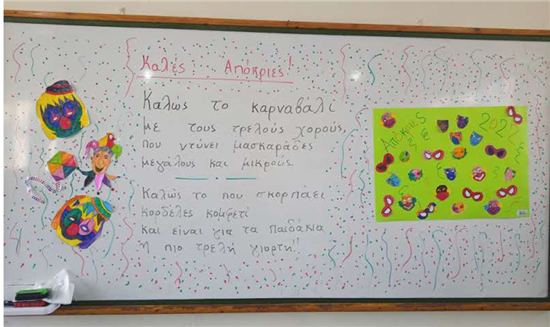 Καλές Απόκριες!
Καλώς το καρναβαλι
με τους τρελούς χορούς,
που ντύνει μασκαράδες
μεγάλους και μικρούς.
Καλώς το που σκορπάει
κορδέλες κομφετί
και είναι για τα παιδάκια
η πιο τρελή γιορτή!!
Απόκριες